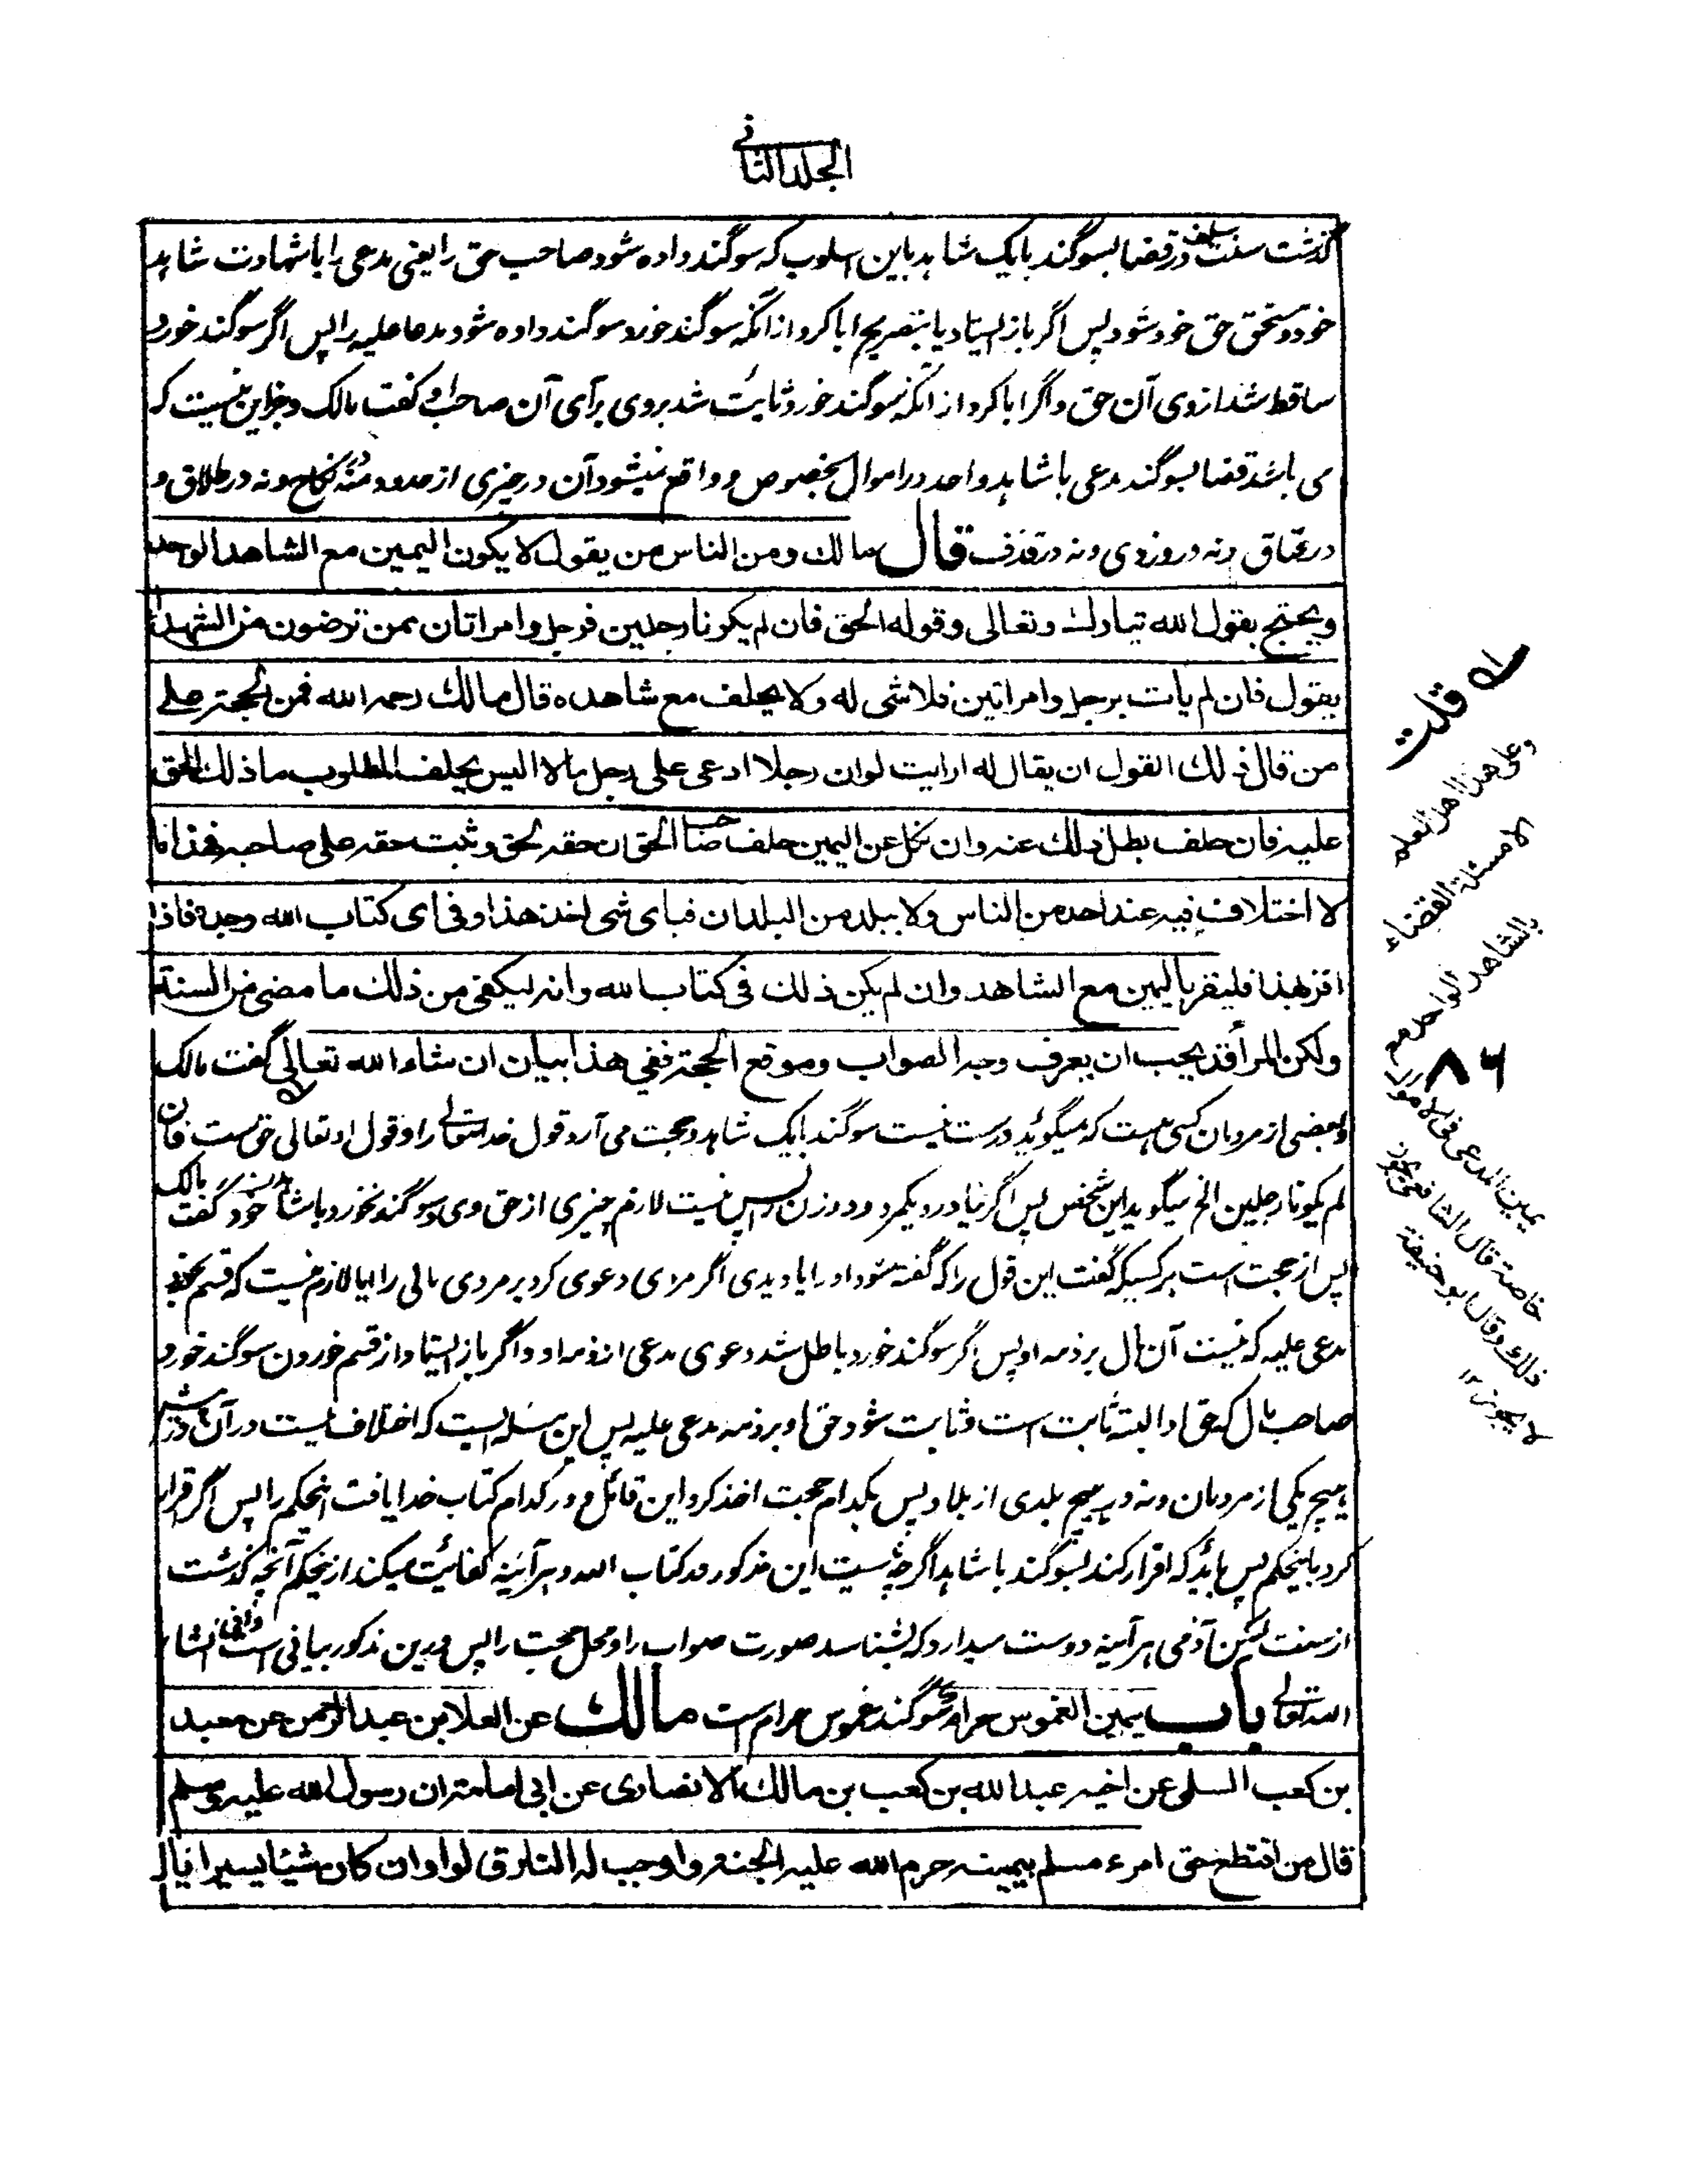 الجلد الثانی
گذشت سنت سلف در قضا بسوگند با یک شاهد باین اسلوب که سوگند داده شود صاحب حق را یعنی مدعی را با شهادت شاهد
خود و مستحق حق خود شود پس اگر باز ایستاد یا بتصریح ابا کرد از آنکه سوگند خورد سوگند داده شود مدعا علیه را پس اگر سوگند خورد
ساقط شد از وی آن حق و اگر ابا کرد از آنکه سوگند خورد ثابت شد بروی برای آن صاحب گفت مالک و جز این نیست که
می باشد قضا بسوگند مدعی با شاهد واحد در اموال بخصوص و واقع نمیشود آن در چیزی از حدود و نه در نکاح و نه در طلاق و
در عتاق و نه در دزدی و نه در قذف قال مالك ومن الناس من يقول لا يكون اليمين مع الشاهد الواحد
ويحتج بقول الله تبارك وتعالى وقوله الحق فان لم يكونا رجلين فرجل وامراتان ممن ترضون من الشهداء
يقول فان لم يأت برجل وامراتين فلا شى له ولا يحلف مع شاهده قال مالك رحمه الله فمن الحجة على
من قال ذلك القول ان يقال له ارايت لو ان رجلا ادعى على رجل مالا اليس يحلف المطلوب ما ذلك الحق
عليه فان حلف بطل ذلك عنه وان نكل عن اليمين حلف صاحب الحق ان حقه لحق وثبت حقه على صاحبه فهذا ما
لا اختلاف فيه عند احد من الناس ولا ببلد من البلدان فباى شى اخذ هذا وفى اى كتاب الله وجده فاذا
اقر بهذا فليقر باليمين مع الشاهد وان لم يكن ذلك فى كتاب الله وانه ليكفى من ذلك ما مضى من السنة
ولكن المرأ قد يحب ان يعرف وجه الصواب وموقع الحجة ففى هذا بيان ان شاء الله تعالى گفت مالک
و بعضی از مردمان کسی هست که میگوید درست نیست سوگند با یک شاهد و حجت می آرد قول خدا تعالی را و قول او تعالی حق ست فان
لم یکونا رجلین الخ میگوید این شخص پس اگر نیاورد یکمرد و دو زن را پس نیست لازم چیزی از حق وی و سوگند نخورد با شاهد خود گفت مالک
پس از حجت است بر کسیکه گفت این قول را که گفته شود او را ایا دیدی اگر مردی دعوی کرد بر مردی مالی را ایا لازم نیست که قسم بخورد
مدعی علیه که نیست آن مال بر ذمه او پس اگر سوگند خورد باطل شد دعوی مدعی از ذمه او و اگر باز ایستاد از قسم خوردن سوگند خورد
صاحب مال که حق او البته ثابت است و ثابت شود حق او بر ذمه مدعی علیه پس این مسئله ایست که اختلاف نیست در آن
هیچ یکی از مردمان و نه در هیچ بلدی از بلاد پس بکدام حجت اخذ کرد این قائل و در کدام کتاب خدا یافت اینحکم را پس اگر اقرار
کرد باینحکم پس باید که اقرار کند بسوگند با شاهد اگرچه نیست این مذکور در کتاب الله و هرآئینه کفایت میکند ازینحکم آنچه گذشت
از سنت لیکن آدمی هرآئینه دوست میدارد که بشناسد صورت صواب را و محل حجت را پس درین مذکور بیانی است وافی انشاء
الله تعالی باب یمین الغموس حرام سوگند غموس حرام است مالك عن العلا بن عبد الرحمن عن معبد
بن كعب السلمى عن اخيه عبد الله بن كعب بن مالك الانصارى عن ابى امامة ان رسول الله عليه وسلم
قال من اقتطع حق امرء مسلم بيمينه حرم الله عليه الجنة واوجب له النار قالوا وان كان شيئا يسيرا يا
له قلت
وعلى هذا اهل العلم
الا مسئلة القضاء
بالشاهد الواحد مع
٨٦
يمين المدعى فى الاموال
خاصة قال الشافعى يجوز
ذلك وقال ابو حنيفة
لا يجوز ١٢